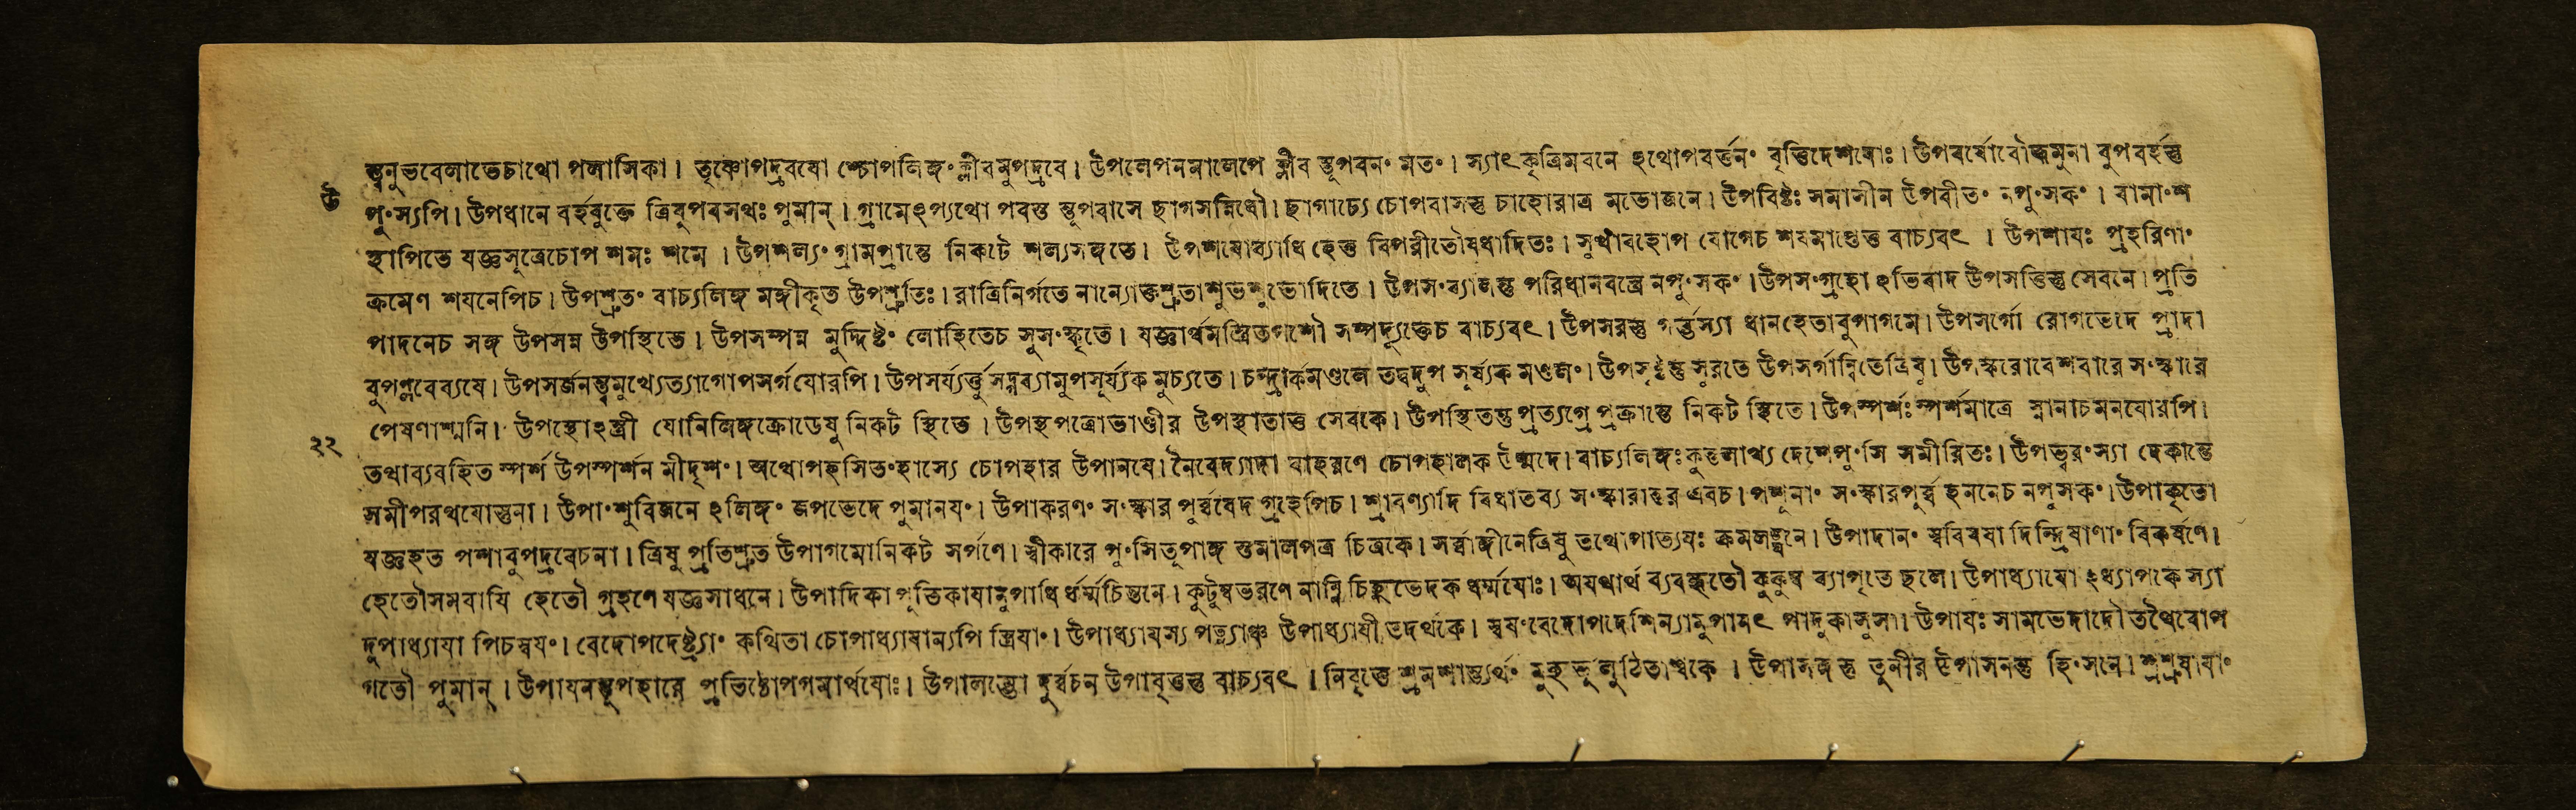 ন্ত্বনুভবেলাভেচাথো পলাসিকা। তৃষ্ণোপদ্রবযো শ্চোপলিঙ্গ॰ ক্লীবমুপদ্রবে। উপলেপনমালেপে ক্লীব ন্তূপবন॰ মত॰। স্যাৎ কৃত্রিমবনে ঽথোপবর্ত্তন॰ বৃত্তিদেশযোঃ।
উ
পু॰স্যপি। উপধানে বর্হমুক্তে ত্রিষুপবসথঃ পুমান্। গ্রামেঽপ্যথো পবস্ত ন্তূপবাসে ছাগসন্নিধৌ। চোপবাসস্তু চাহোরাত্র মভোজনে। উপবিষ্টঃ সমাসীন উপবীত॰ নপু॰সক॰। বামা॰শ
স্থাপিতে যজ্ঞসূত্রেচোপ শমঃ শমে। উপশল্য॰ গ্রামপ্রান্তে নিকটে শল্যসঙ্গতে। উপশযোব্যাধি হেতু বিপরীতৌষধাদিতঃ। বাচ্যবৎ। উপশাযঃ প্রহরিণা॰
ক্রমেণ শযনেপিচ। উপশ্রুত॰ বাচ্যলিঙ্গ মঙ্গীকৃত উপশ্রুতিঃ। রাত্রিনির্গতে উপস॰ব্যানন্তু পরিধানবস্ত্রে নপু॰সক॰। উপস॰গ্রহো ঽভিবাদ উপসত্তিস্তু সেবনে। প্রতি
পাদনেচ সঙ্গ উপসন্ন উপস্থিতে। উপসম্পন্ন মুদ্দিষ্ট॰ লোহিতেচ সুস॰স্কৃতে। সম্পদ্যুক্তেচ বাচ্যবৎ। উপসরস্তু গর্ব্ভস্যা ধানহেতাবুপাগমে। উপসর্গো রোগভেদে প্রাদা
বুপপ্লবেব্যষে। উপসর্জনন্ত্বমুখ্যেত্যাগোপসর্গযোরপি। চন্দ্রার্কমণ্ডলে তদ্বদুপ সূর্য্যক মণ্ডল॰। সুরতে উপসর্গান্বিতেত্রিষু। উপস্করোবেশবারে স॰স্কারে
পেষণাশ্মনি। উপস্থোঽস্ত্রী যোনিলিঙ্গক্রোডেষু নিকট স্থিতে। উপস্থপত্রোভাণ্ডীর উপস্থাতাত্তু সেবকে। উপস্থিতন্তু প্রত্যগ্রে প্রক্রান্তে নিকট স্থিতে। উপস্পর্শঃ স্পর্শমাত্রে স্নানাচমনযোরপি।
২২
তথাব্যবহিত স্পর্শ উপস্পর্শন মীদৃশ॰। অথোপহসিত॰হাস্যে চোপহার উপানষে। নৈবেদ্যাদা বাহরণে চোপহালক উন্মদে। বাচ্যলিঙ্গঃকুন্তলাখ্য দেশেপু॰সি সমীরিতঃ। উপহ্বর॰স্যা দেকান্তে
সমীপরথযোস্তুনা। উপা॰শুবিজনে ঽলিঙ্গ॰ জপভেদে পুমানয॰। উপাকরণ॰ স॰স্কার পূর্ব্ববেদ গ্রহেপিচ। শ্রাবণ্যাদি বিধাতব্য স॰স্কারান্তর এবচ। পশূনা॰ স॰স্কারপূর্ব্ব হননেচ নপুসক॰। উপাকৃতো
যজ্ঞহত পশাবুপদ্রবেচনা। ত্রিষু প্রতিশ্রুত উপাগমোনিকট সর্পণে। স্বীকারে পু॰সিতূপাঙ্গ স্তুমালপত্র চিত্রকে। সর্ব্বাঙ্গীনেত্রিষু তথোপাত্যযঃ ক্রমলঙ্ঘনে। উপাদান॰ স্ববিষযা দিন্দ্রিযাণা॰ বিকর্ষণে।
হেতৌসমবাযি হেতৌ গ্রহণে যজ্ঞসাধনে। উপাদিকা পুত্তিকাযামুপাধি র্ধর্ম্মচিন্তনে। কুটুম্বভরণে নাম্নি চিহ্নভেদক ধর্ম্মযোঃ। অযথার্থ ব্যবহৃতৌ কুকুষ ব্যাপৃতে ছলে। উপাধ্যাযো ঽধ্যাপকে স্যা
দুপাধ্যাযা পিচস্বয॰। বেদোপদেষ্ট্র্যা॰ কথিতা চোপাধ্যাযান্যপি স্ত্রিযা॰। উপাধ্যাযস্য পত্ন্যাঞ্চ উপাধ্যাযী তদর্থকে। স্বয॰বেদোপদেশিন্যামুপানৎ পাদুকাসুসা। উপাযঃ সামভেদাদৌ তথৈবোপ
গতৌ পুমান্। উপাযনন্তূপহারে প্রতিষ্ঠোপগমার্থযোঃ। উপালম্ভো দুর্ব্বচন উপাবৃত্তন্তু বাচ্যবৎ। নিবৃত্তে শ্রমশান্ত্যর্থ॰ মুহ র্ভূলুঠিতাশ্বকে। উপাসঙ্গ স্তু তূনীর উপাসনন্তু হি॰সনে। শুশ্রূষাযা॰